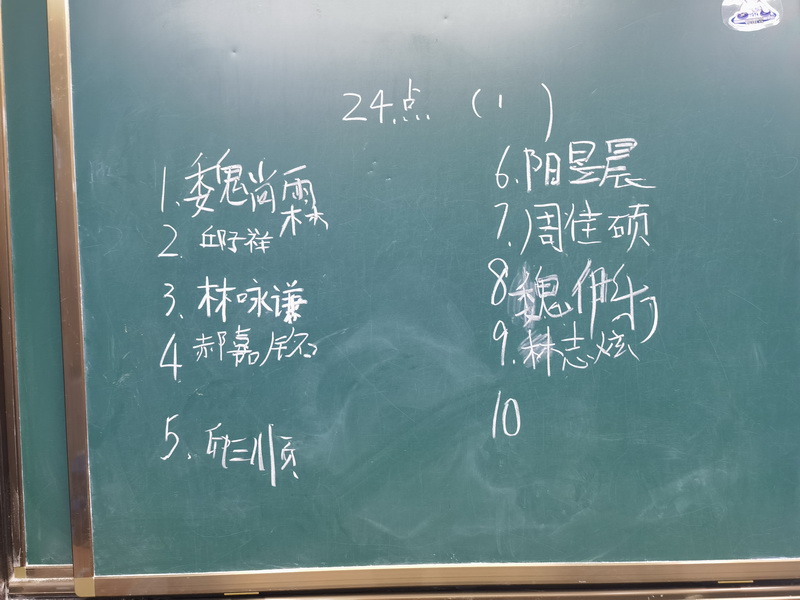 24点 (1)
1.魏尚霖
2.邱子祥
3.林咏谦
4 郝嘉铭
5.邱三顺
6.阳昱晨
7.周佳硕
8 魏伊
9.林志炫
10